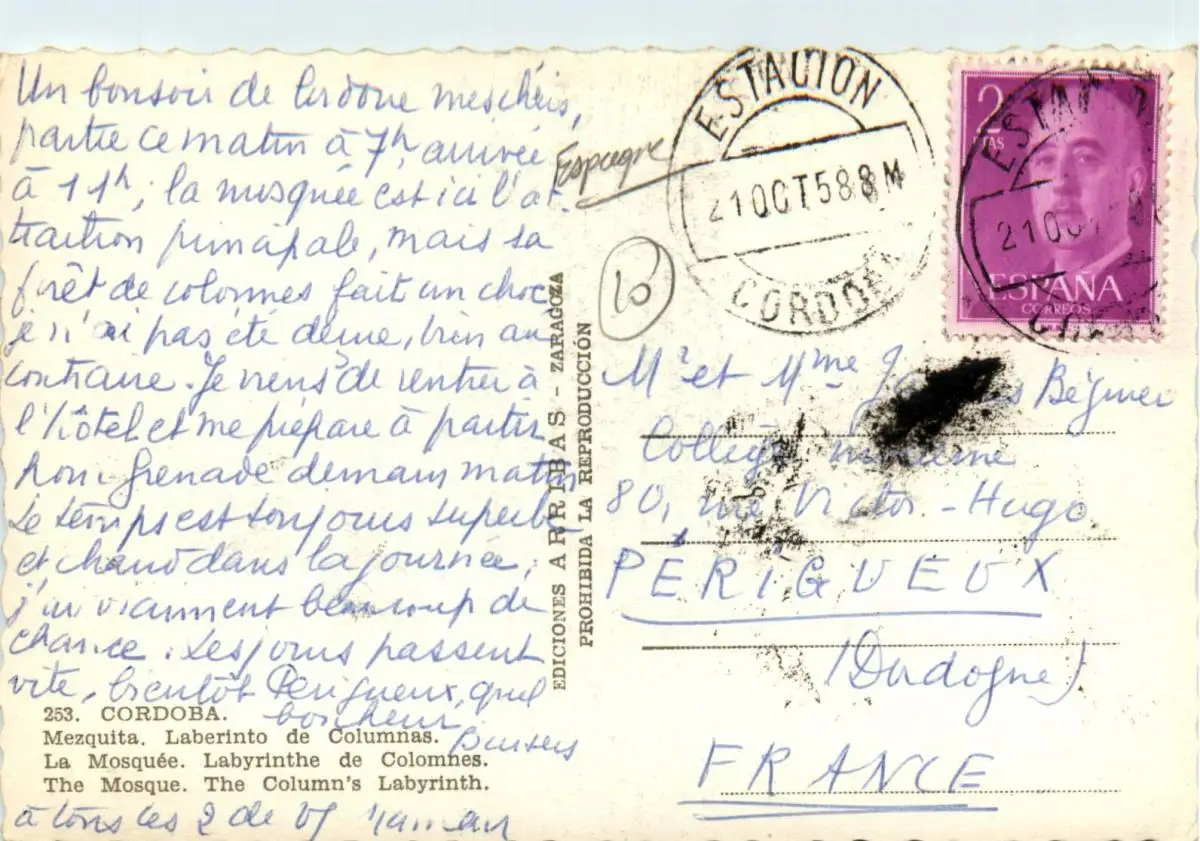 Un bonsoir de Cordoue mes chéris,
partie ce matin à 7h, arrivée
à 11h; la mosquée est ici l'at-
traction principale, mais sa
forêt de colonnes fait un choc
je n'ai pas été déçue, bien au
contraire. Je viens de rentrer à
l'hôtel et me prépare à partir
pour Grenade demain matin
Le temps est toujours superbe
et chaud dans la journée,
j'ai vraiment beaucoup de
chance. Les jours passent
vite, bientôt Périgueux, quel
bonheur
Baisers
à tous les 2 de
253. CORDOBA.
Mezquita. Laberinto de Columnas.
La Mosquée. Labyrinthe de Colomnes.
The Mosque. The Column's Labyrinth.
EDICIONES ARRIBAS - ZARAGOZA
PROHIBIDA LA REPRODUCCIÓN
Espagne
ESTACION
21 OCT 58 8M
CORDOBA
2
PTAS
ESPAÑA
CORREOS
Mr et Mme
Collège moderne
80, rue Victor-Hugo
PÉRIGUEUX
(Dordogne)
FRANCE